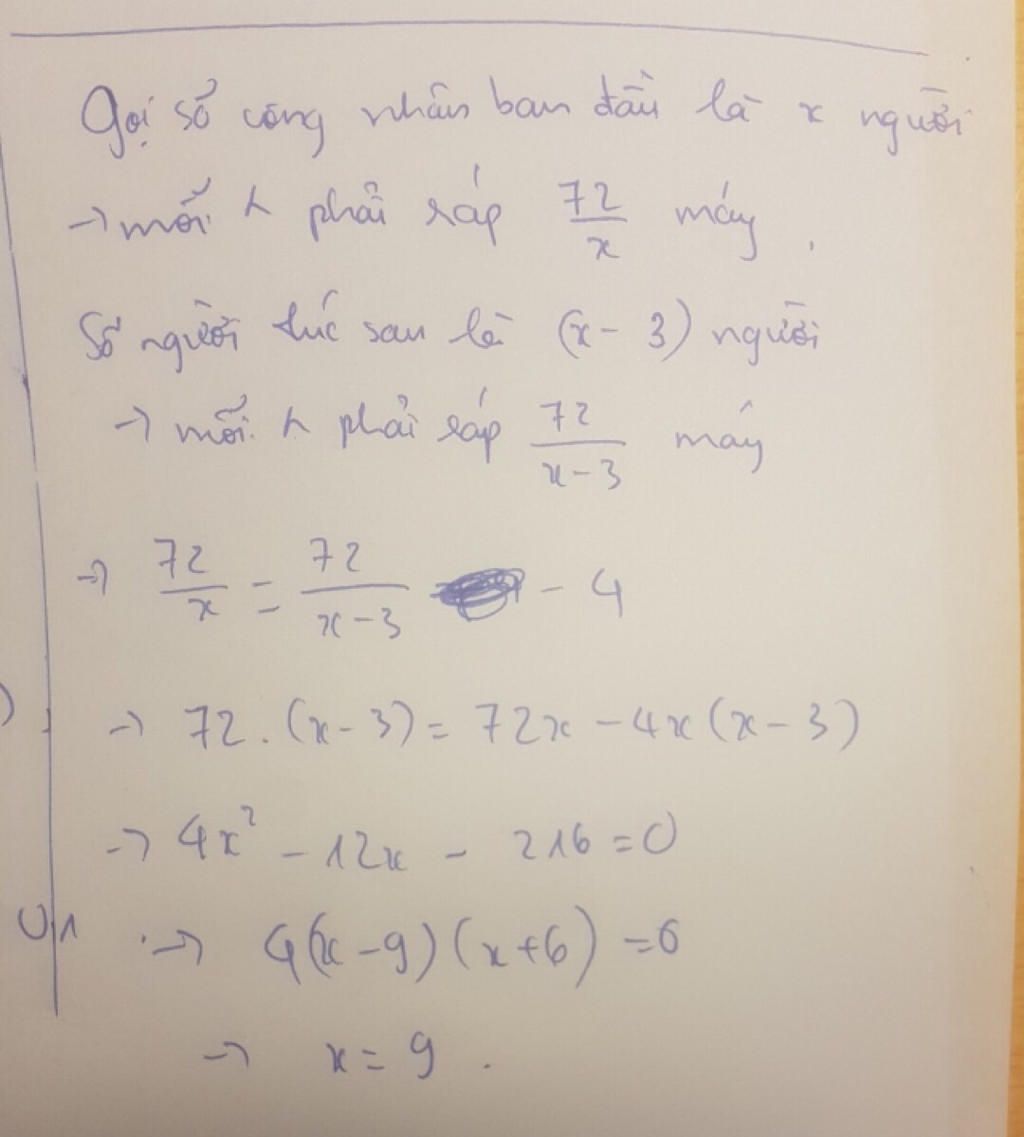 Gọi số công nhân ban đầu là x người
→ mỗi ng phải ráp 72/x máy.
Số người lúc sau là (x - 3) người
→ mỗi ng phải ráp 72/(x-3) máy
→ 72/x = 72/(x-3) - 4
→ 72.(x-3) = 72x - 4x(x-3)
→ 4x² - 12x - 216 = 0
→ 4(x-9)(x+6) = 0
→ x = 9.